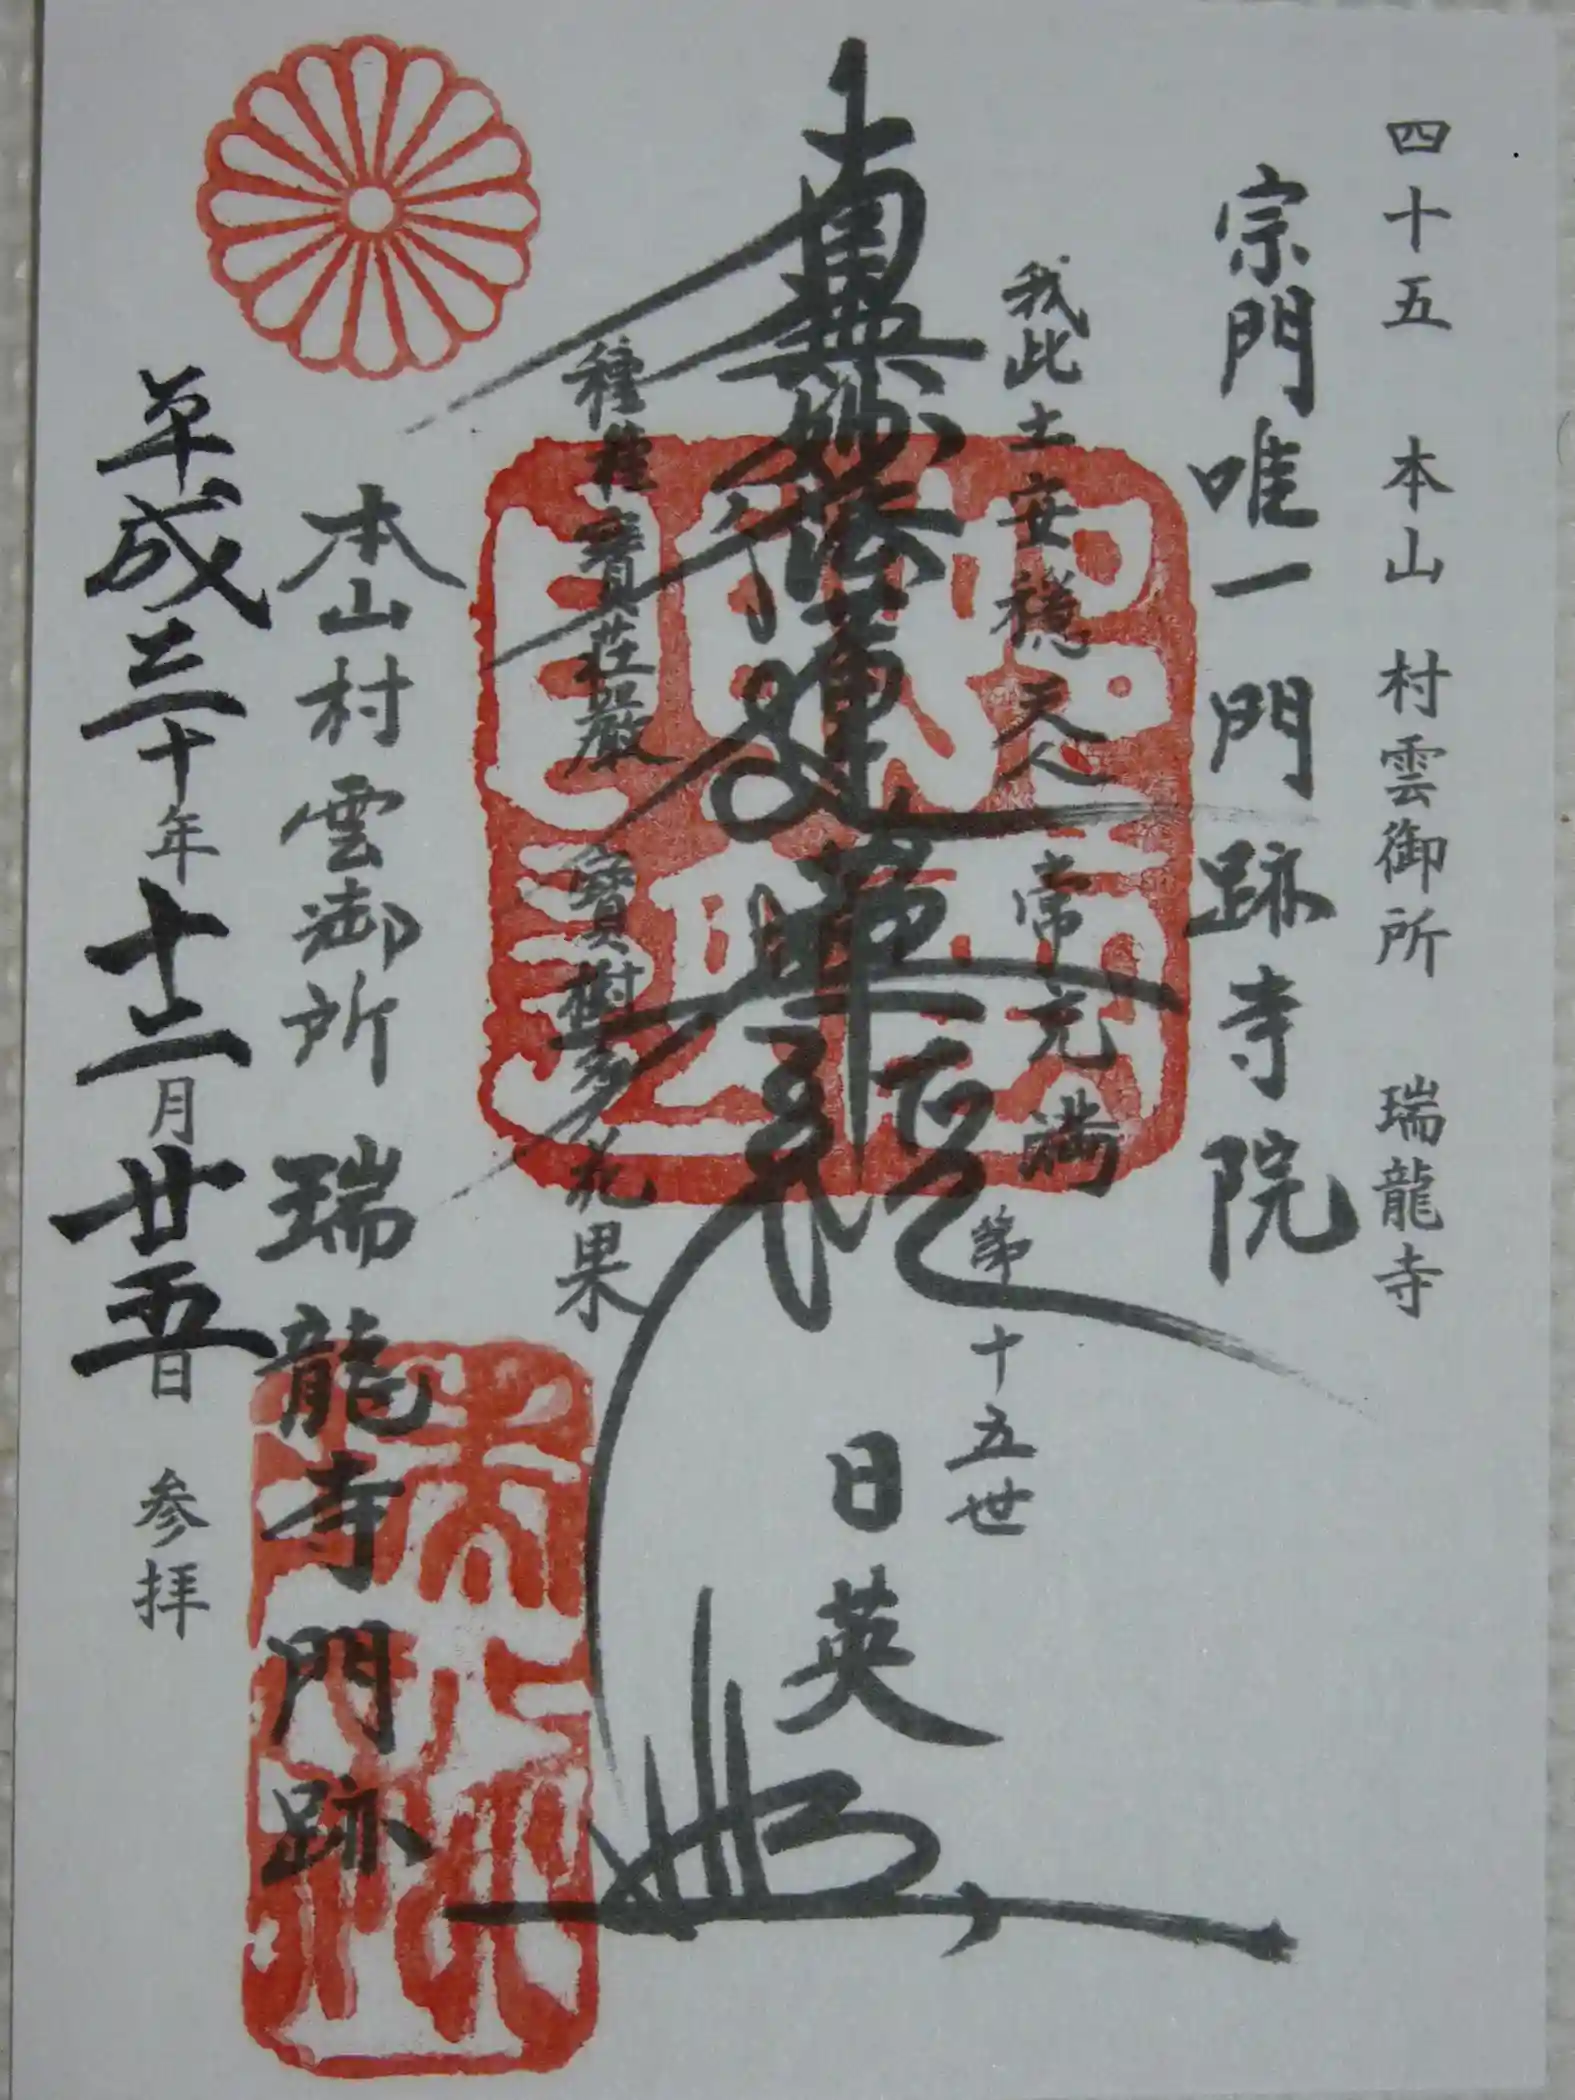 四十五 本山 村雲御所 瑞龍寺
宗門唯一門跡寺院
我此土安穏 天人常充満
南無妙法蓮華経
第十五世
日英
種種寶荘厳 寶樹多花果
本山村雲御所 瑞龍寺門跡
平成三十年十二月廿五日 参拝